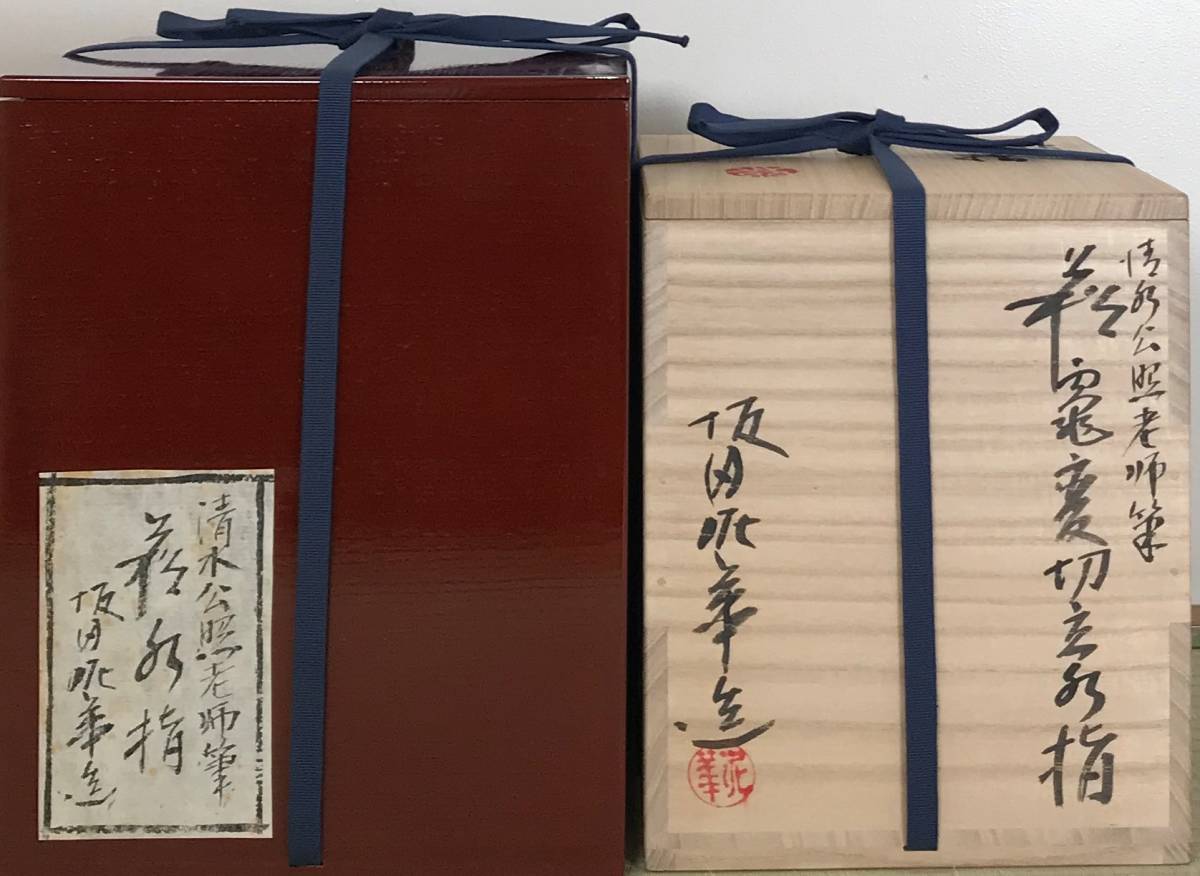 清水公照老師筆
萩窯変切立水指
坂田泥華造
泥華
清水公照老師筆
萩水指
坂田泥華造